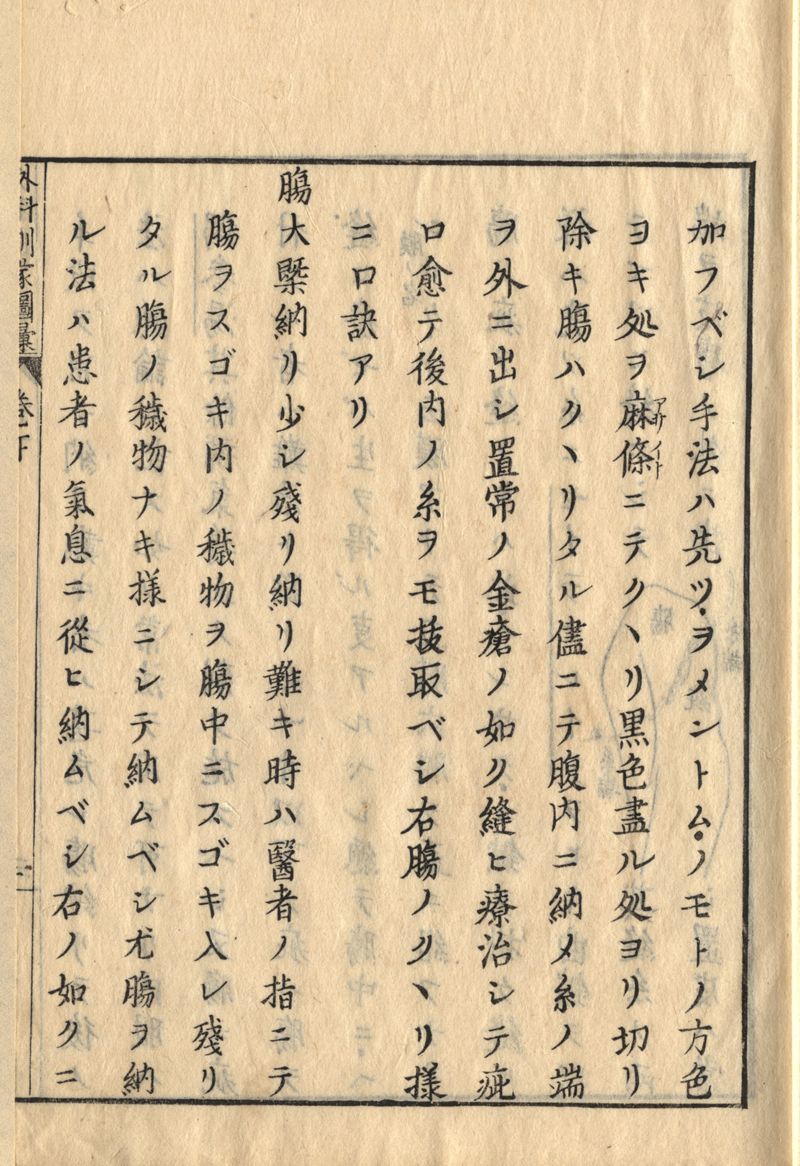 加フベシ手法ハ先ツ・ヲメントム・ノモトノ方色
ヨキ処ヲ麻條ニテクヽリ黒色盡ル処ヨリ切リ
アサイト
除キ腸ハクヽリタル儘ニテ腹内ニ納メ糸ノ端
ヲ外ニ出シ置常ノ金瘡ノ如ク縫ヒ療治シテ疵
口愈テ後内ノ糸ヲモ抜取ベシ右腸ノクヽリ様
ニ口訣アリ
腸大槩納リ少シ殘リ納リ難キ時ハ醫者ノ指ニテ
腸ヲスゴキ内ノ穢物ヲ腸中ニスゴキ入レ殘リ
タル腸ノ穢物ナキ様ニシテ納ムベシ尤腸ヲ納
ル法ハ患者ノ氣息ニ從ヒ納ムベシ右ノ如クニ
外科訓蒙圖彙 卷下